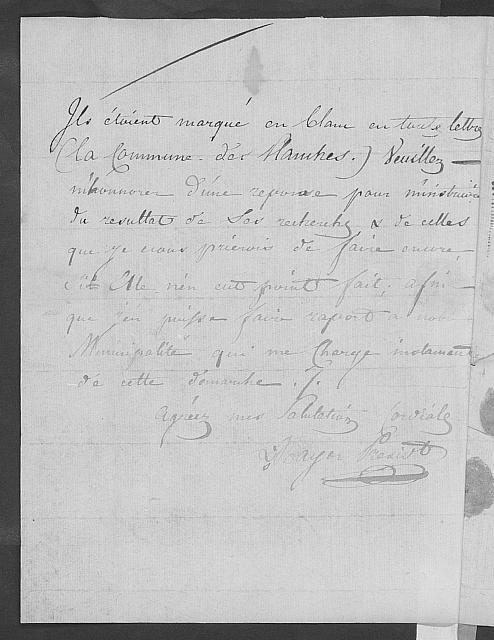 Ils étoient marqué en blanc en toute lettre
(La Commune des Planches.) Veuillez
m'honnorer d'une reponse pour m'instruire
du resultat de Ses recherches & de celles
que je vous prierois de faire encore,
Elle n'en eut point fait, afin
que j'en puisse faire raport a notre
Municipalité qui me Charge instament
de cette demarche ./.
Agréez mes Salutations Cordiales